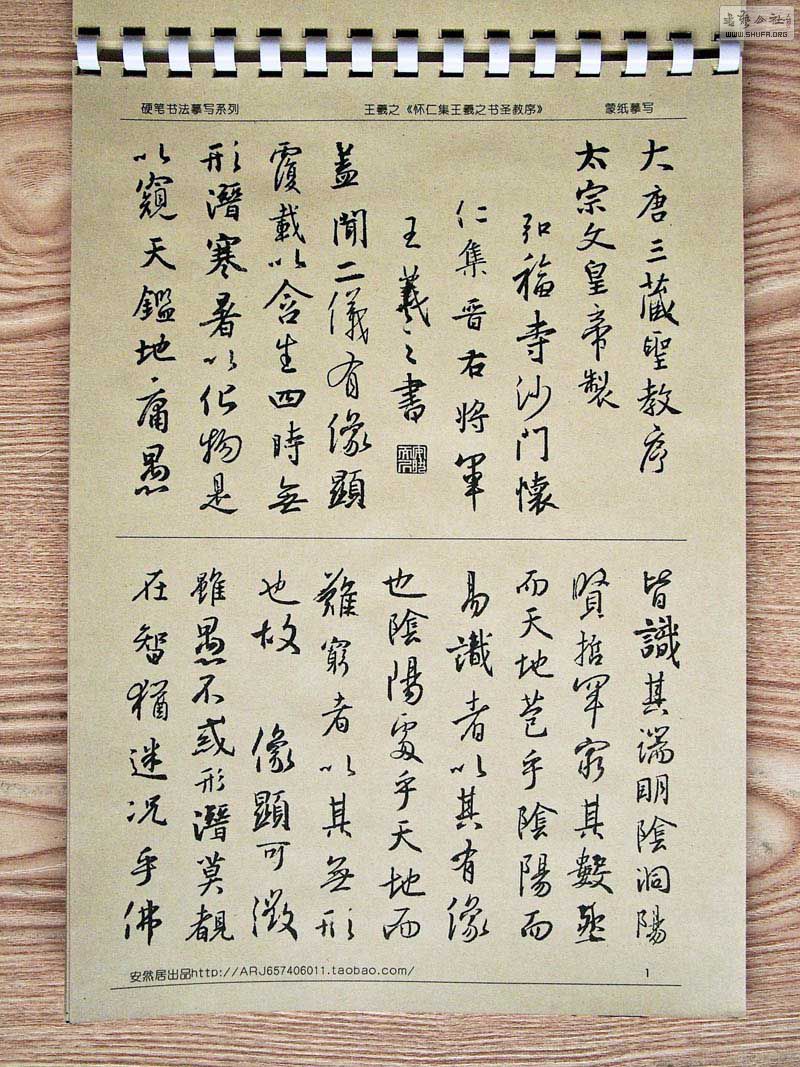 书艺公社
WWW.SHUFA.ORG
硬笔书法摹写系列 王羲之《怀仁集王羲之书圣教序》 蒙纸摹写
大唐三藏聖教序
太宗文皇帝製
弘福寺沙門懷
仁集晋右將軍
王羲之書
蓋聞二儀有像顯
覆載以含生四時無
形潛寒暑以化物是
以窺天鑑地庸愚
皆識其端明陰洞陽
賢哲罕窮其數然
而天地苞乎陰陽而
易識者以其有像
也陰陽處乎天地而
難窮者以其無形
也故 像顯可徵
雖愚不惑形潛莫覩
在智猶迷况乎佛
安然居出品http://ARJ657406011.taobao.com/ 1